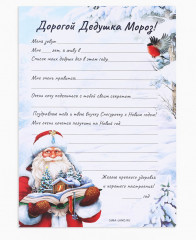 Дорогой Дедушка Мороз!
Меня зовут
Мне ___ лет, я живу в
Список моих добрых дел в этом году
Мне очень нравится
Хочу хочу поделиться с тобой своим секретом
Поздравляю тебя и твою внучку Снегурочку с Новым годом!
Мне очень хочется получить на Новый год
Желаю крепкого здоровья
и хорошего настроения!
год